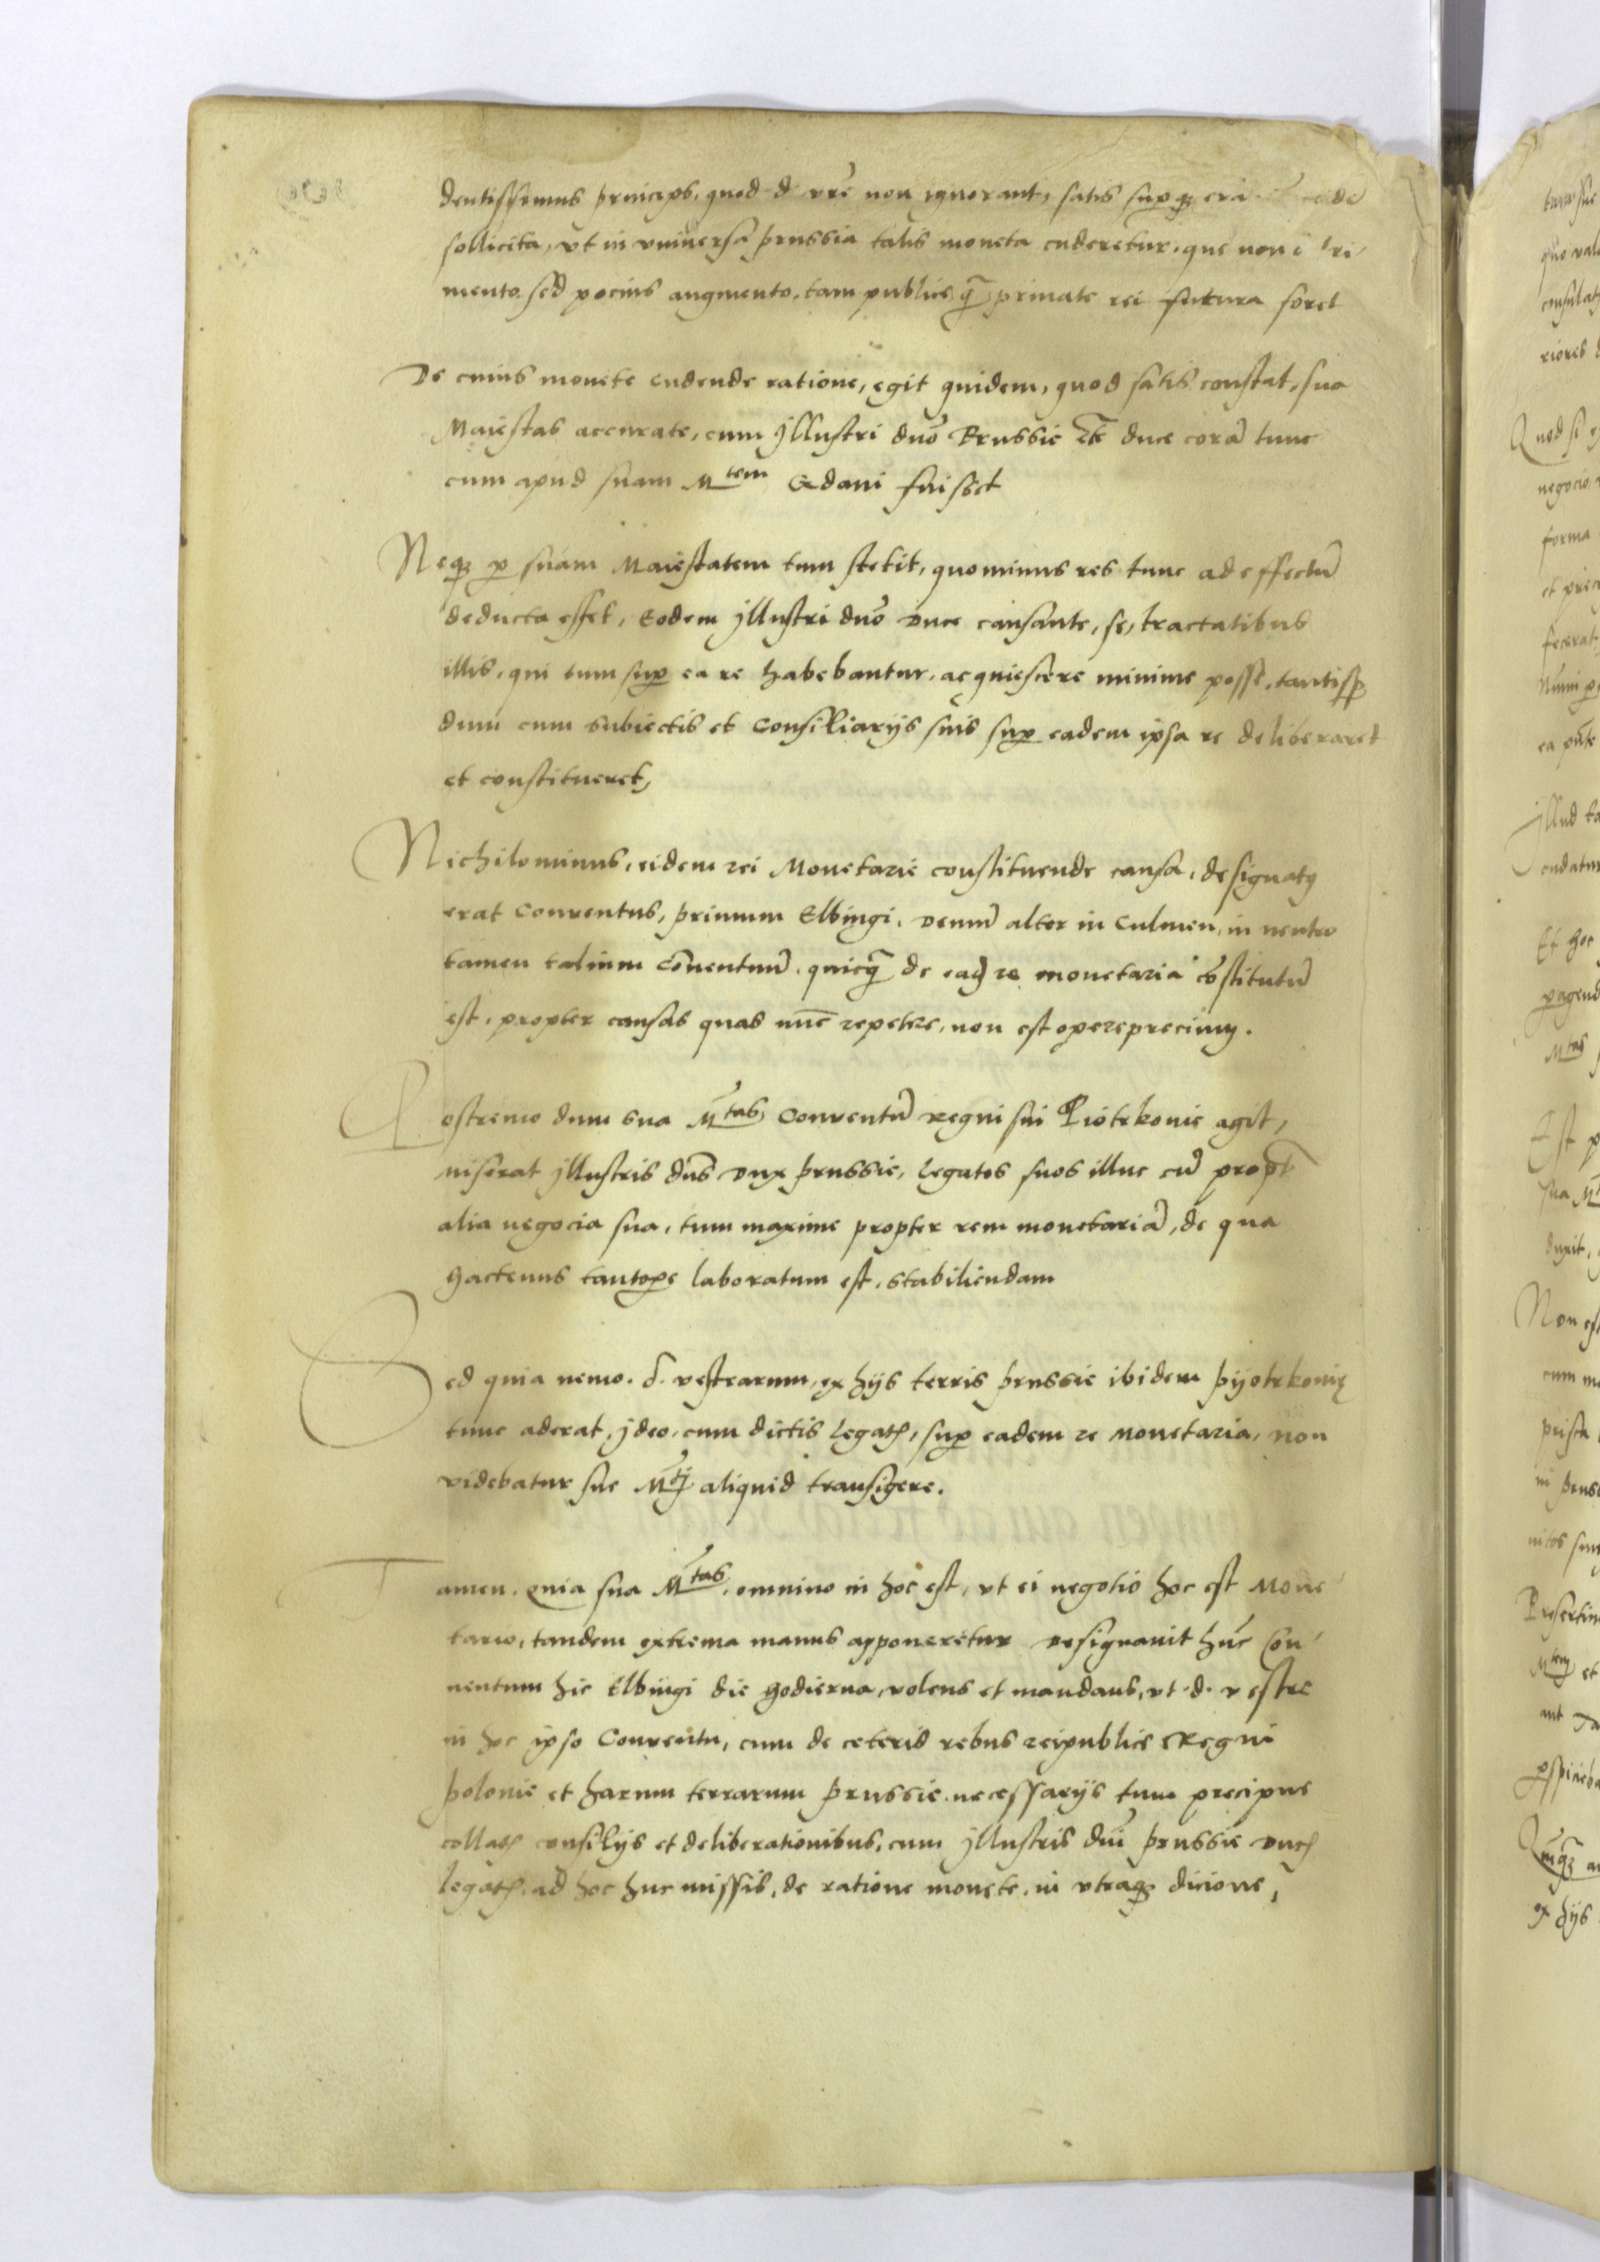 dentissimus princeps, quod d vrē non ignorant, satis supqȝ
sollicita, vt in vniversa prussia talis moneta cuderetur, que non
mento sed pocius augmento, tam publice q̄ȝ private rei futura foret
De cuius monete cudende ratione, egit quidem, quod satis constat, sua
Maiestas accurate, cum Jllustri dno Prussie etc duce corā tunc
cum apud suam Mtem Gdani fuisset
Neqȝ p suam Maiestatem tum stetit, quominus res tunc ad effectū
deducta esset, Eodem Jllustri dno Duce causante, se, tractatibus
illis, qui tum sup ea re habebantur, acquiescere minime posse, tantisp
dum cum subiectis et Consiliarijs suis sup eadem ipsa re deliberaret
et constitueret,
Nichilominus, eidem rei Monetarie constituende causa, designatq
erat Conventus, primum Elbingi, Demū alter in Culmen, in neutro
tamen talium cōventuū, quicq̄ de eadȝ re monetaria cōstitutū
est, propter causas quas nūc repetere, non est opereprecium.
Postremo dum sua Mtas Conventū regni sui Piotrkovie agit,
miserat Jllustris dns Dux prussie, legatos suos illuc cū propt
alia negocia sua, tum maxime propter rem monetariā, de qua
hactenus tantope laboratum est, stabiliendam
Sed quia nemo. d. vestrarum, ex hijs terris prussie ibidem pyotrkovie
tunc aderat, jdeo, cum dictis legatȝ, sup eadem re Monetaria, non
videbatur sue Mtj aliquid transigere.
Tamen, Quia sua Mtas, omnino in hoc est, vt ei negotio hoc est Mone
tario, tandem extrema manus apponeretur Designavit hūc Con
ventum hic Elbingi die hodierna, volens et mandans, vt d. vestre
in hoc ipso Conventu, cum de ceteris rebus reipublice Regni
polonie et harum terrarum prussie necessarijs tum precipue
collatȝ consilijs et deliberationibus, cum Jllustris dni prussie Ducȝ
legatȝ, ad hoc huc missis, de ratione monete, in vtraqȝ dicione,